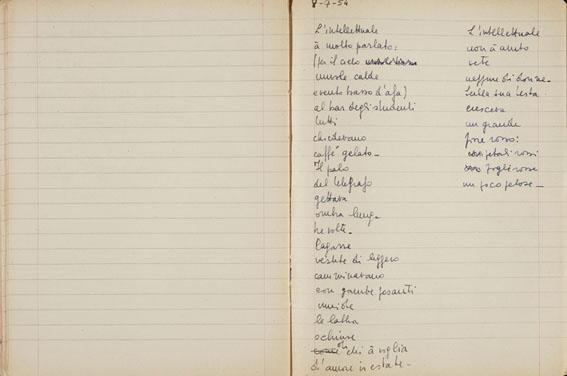 8-7-54
L'intellettuale
à molto parlato:
(per il cielo
nuvole calde
vento basso d'afa)
al bar degli studenti
tutti
chiedevano
caffè gelato_
il palo
del telegrafo
gettava
ombra lung_
tre volte_
Ragazze
vestite di leggero
camminavano
con gambe pesanti
umide
le labbra
schiuse
di chi à voglia
d'amore in estate_
L'intellettuale
non à avuto
sete
neppure di donne_
Sulla sua testa
cresceva
un grande
fiore rosso:
petali rossi
foglie rosse
un poco pelose_